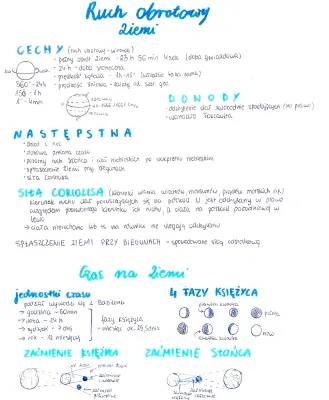 Ruch obrotowy
Ziemi
CECHY (ruch obrotowy - wirowy)
- pełny obrót Ziemi - 23h 56 min 4 sek (doba gwiazdowa)
- 24h - doba słoneczna
- prędkość kątowa - 1h - 15° (wszędzie taka sama)
- prędkość liniowa - zależy od szer. geo.
360° - 24h
15° - 1h
1° - 4 min
DOWODY
- odchylenie ciał swobodnie spadających (na prawo)
- wahadło Foucaulta
NASTĘPSTWA
- dzień i noc
- dobowa zmiana czasu
- pozorny ruch Słońca i ciał niebieskich po sklepieniu niebieskim
- spłaszczenie Ziemi przy biegunach
- siła Coriolisa
SIŁA CORIOLISA (kierunki wiania wiatrów, prądów morskich np.)
kierunek ruchu ciał poruszających się na półkuli N jest odchylany w prawo
względem pierwotnego kierunku ich ruchu, a ciała na półkuli południowej w
lewo
→ ciała nieruchome lub te na równiku nie ulegają odchyleniu
SPŁASZCZENIE ZIEMI PRZY BIEGUNACH - spowodowane siłą odśrodkową
Czas na Ziemi
jednostki czasu
podział wywodzi się z Babilonu
→ godzina - 60 min
→ doba - 24 h
→ tydzień - 7 dni
→ rok - 12 miesięcy
fazy księżyca
→ miesiąc ok. 29,5 dnia
4 FAZY KSIĘŻYCA
pierwsza kwadra
pełnia
nów
ZAĆMIENIE KSIĘŻYCA
ZAĆMIENIE SŁOŃCA